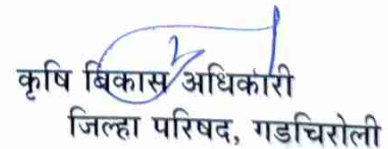 कृषि बिकास अधिकारी
जिल्हा परिषद, गडचिरोली